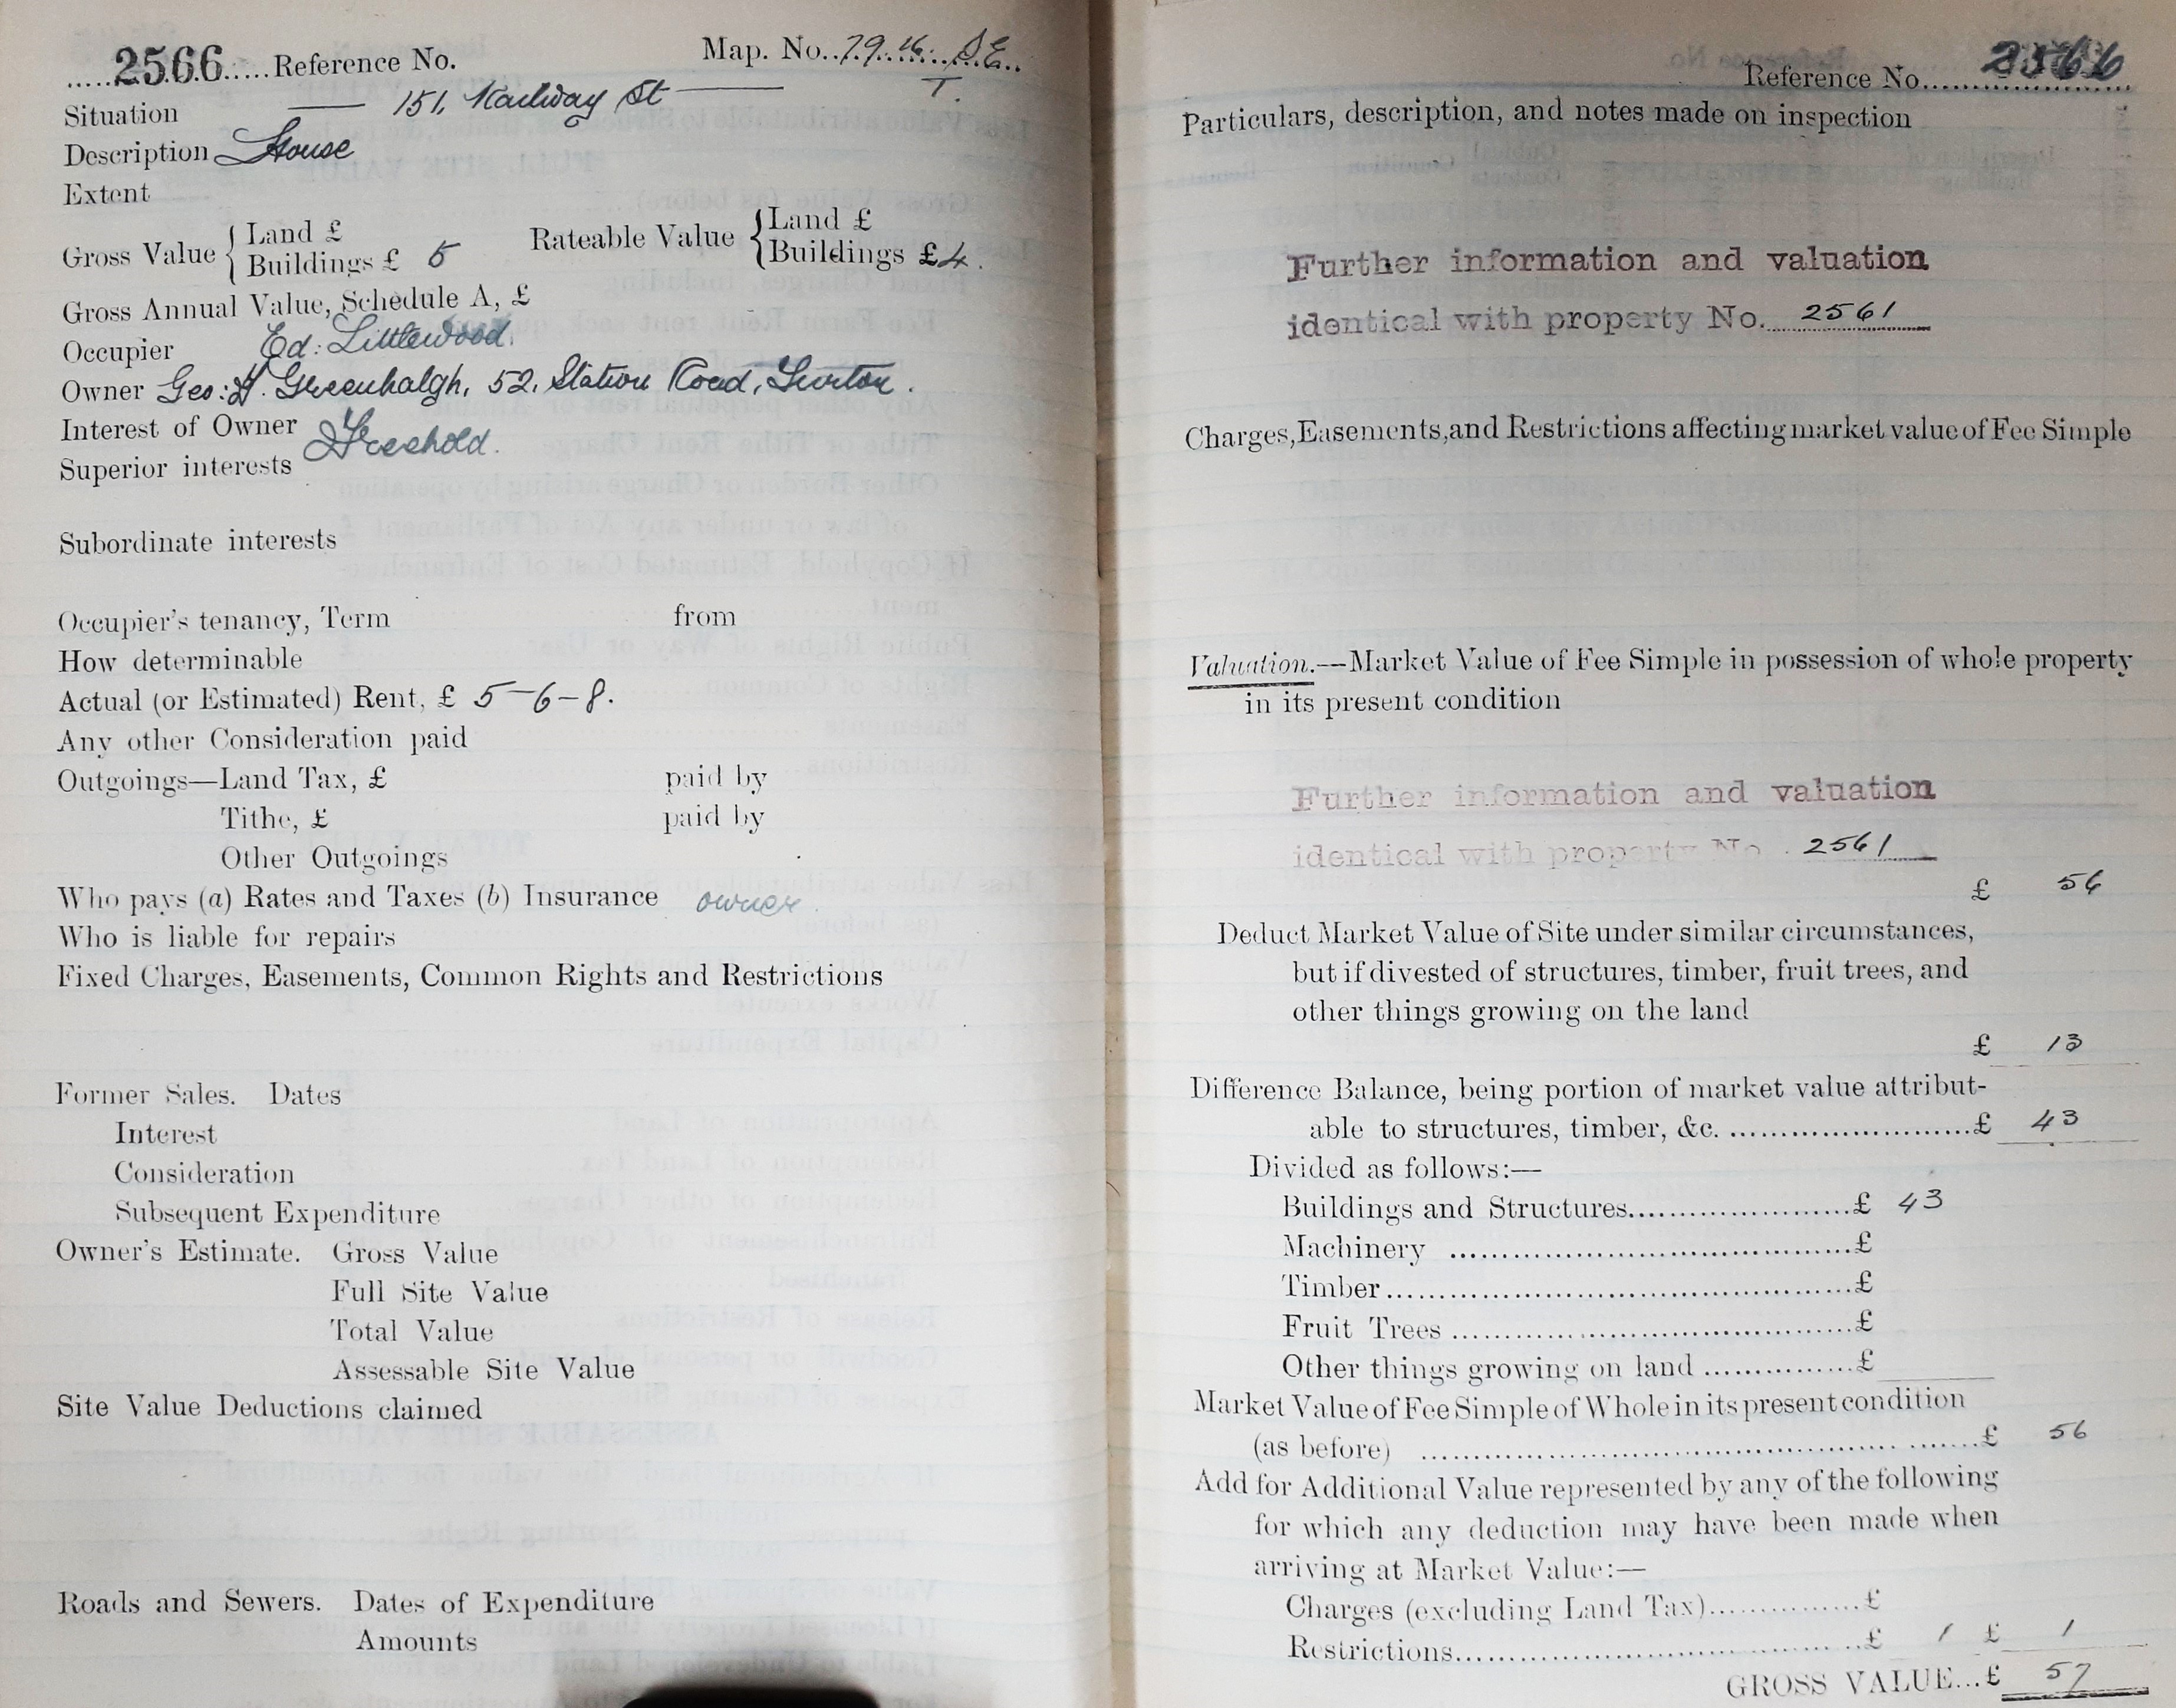 .....2566.....Reference No. Map. No..79.16. S.E..
T.
Situation —— 151, Railway St ——
Description House
Extent
Gross Value { Land £ Rateable Value { Land £
Buildings £ 5 Buildings £4.
Gross Annual Value, Schedule A, £
Occupier Ed: Littlewood.
Owner Geo: H. Greenhalgh, 52, Station Road, Turton.
Interest of Owner Freehold.
Superior interests
Subordinate interests
Occupier's tenancy, Term from
How determinable
Actual (or Estimated) Rent, £ 5-6-8.
Any other Consideration paid
Outgoings—Land Tax, £ paid by
Tithe, £ paid by
Other Outgoings
Who pays (a) Rates and Taxes (b) Insurance owner.
Who is liable for repairs
Fixed Charges, Easements, Common Rights and Restrictions
Former Sales. Dates
Interest
Consideration
Subsequent Expenditure
Owner's Estimate. Gross Value
Full Site Value
Total Value
Assessable Site Value
Site Value Deductions claimed
Roads and Sewers. Dates of Expenditure
Amounts
Reference No. 2566
Particulars, description, and notes made on inspection
Further information and valuation
identical with property No. 2561
Charges, Easements, and Restrictions affecting market value of Fee Simple
Valuation.—Market Value of Fee Simple in possession of whole property
in its present condition
Further information and valuation
identical with property No. 2561
£ 56
Deduct Market Value of Site under similar circumstances,
but if divested of structures, timber, fruit trees, and
other things growing on the land
£ 13
Difference Balance, being portion of market value attribut-
able to structures, timber, &c. ........................£ 43
Divided as follows:—
Buildings and Structures......................£ 43
Machinery ........................................£
Timber..............................................£
Fruit Trees ........................................£
Other things growing on land ...............£
Market Value of Fee Simple of Whole in its present condition
(as before) ........................................................£ 56
Add for Additional Value represented by any of the following
for which any deduction may have been made when
arriving at Market Value:—
Charges (excluding Land Tax)...............£
Restrictions.........................................£ 1 £ 1
GROSS VALUE...£ 57